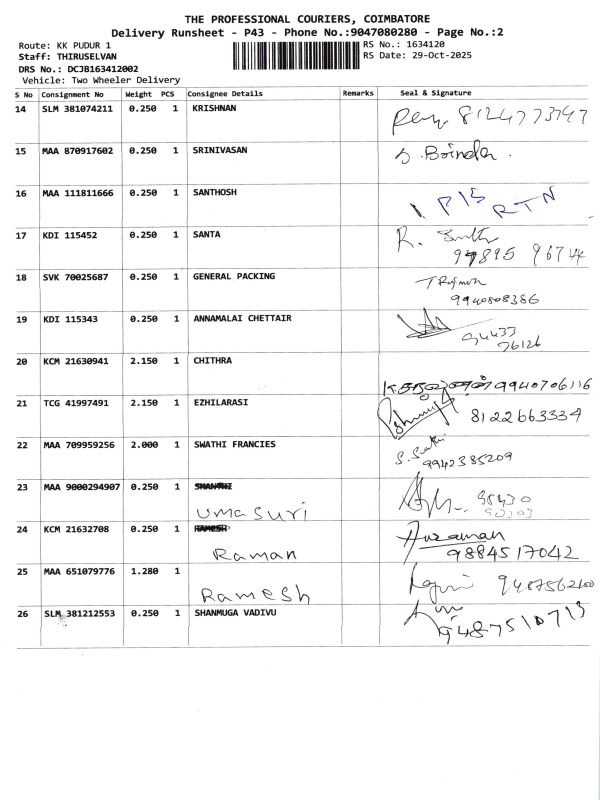 THE PROFESSIONAL COURIERS, COIMBATORE
Delivery Runsheet - P43 - Phone No.:9047080280 - Page No.:2
Route: KK PUDUR 1
RS No.: 1634120
Staff: THIRUSELVAN
RS Date: 29-Oct-2025
DRS No.: DCJB163412002
Vehicle: Two Wheeler Delivery
S No Consignment No Weight PCS Consignee Details Remarks Seal & Signature
14 SLM 381074211 0.250 1 KRISHNAN 8124773747
15 MAA 870917602 0.250 1 SRINIVASAN
16 MAA 111811666 0.250 1 SANTHOSH P15 RTN
17 KDI 115452 0.250 1 SANTA R.
18 SVK 70025687 0.250 1 GENERAL PACKING
9940808386
19 KDI 115343 0.250 1 ANNAMALAI CHETTAIR
94433
76126
20 KCM 21630941 2.150 1 CHITHRA
9940706116
21 TCG 41997491 2.150 1 EZHILARASI 8122663334
22 MAA 709959256 2.000 1 SWATHI FRANCIES
9942385209
23 MAA 9000294907 0.250 1 SHANTHI
Uma Suri
98430
24 KCM 21632708 0.250 1 RAMESH
Raman 9884517042
25 MAA 651079776 1.280 1
Ramesh
26 SLM 381212553 0.250 1 SHANMUGA VADIVU
9487510713